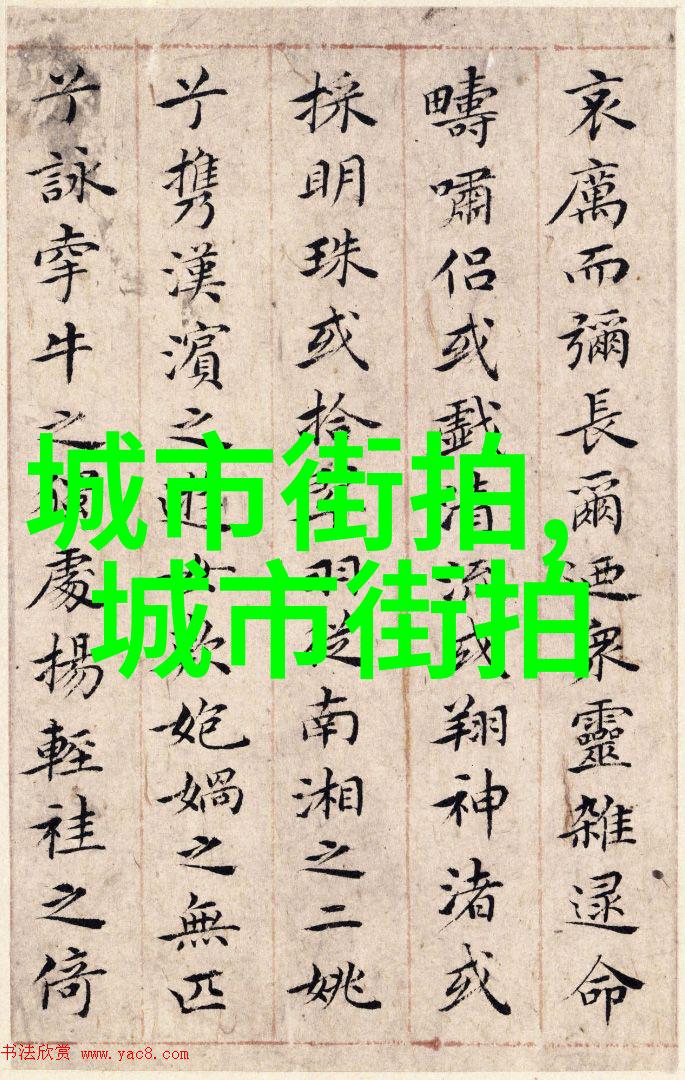 哀厲而彌長爾迺衆靈雜遝命
疇嘯侣或戲清流或翔神渚或
採明珠或拾翠羽從南湘之二姚
兮携漢濱之遊女歎媧之無匹
兮詠牽牛之獨處揚輕袿之倚
城市街拍,
城市街拍
书法欣赏 www.yac8.com